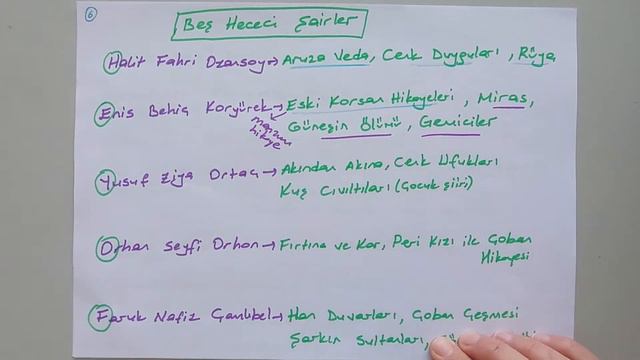 6
Beş Hececi Şairler
Halit Fahri Ozansoy→ Aruza Veda, Cenk Duyguları, Rüya
Enis Behiç Koryürek→ Eski Korsan Hikayeleri, Miras,
manzum hikaye
Güneşin Ölümü, Gemiciler
Yusuf Ziya Ortaç→ Akından Akına, Cenk Ufukları
Kuş Cıvıltıları (Çocuk şiiri)
Orhan Seyfi Orhon→ Fırtına ve Kar, Peri Kızı ile Çoban
Hikayesi
Faruk Nafiz Çamlıbel→ Han Duvarları, Çoban Çeşmesi
Şarkın Sultanları,